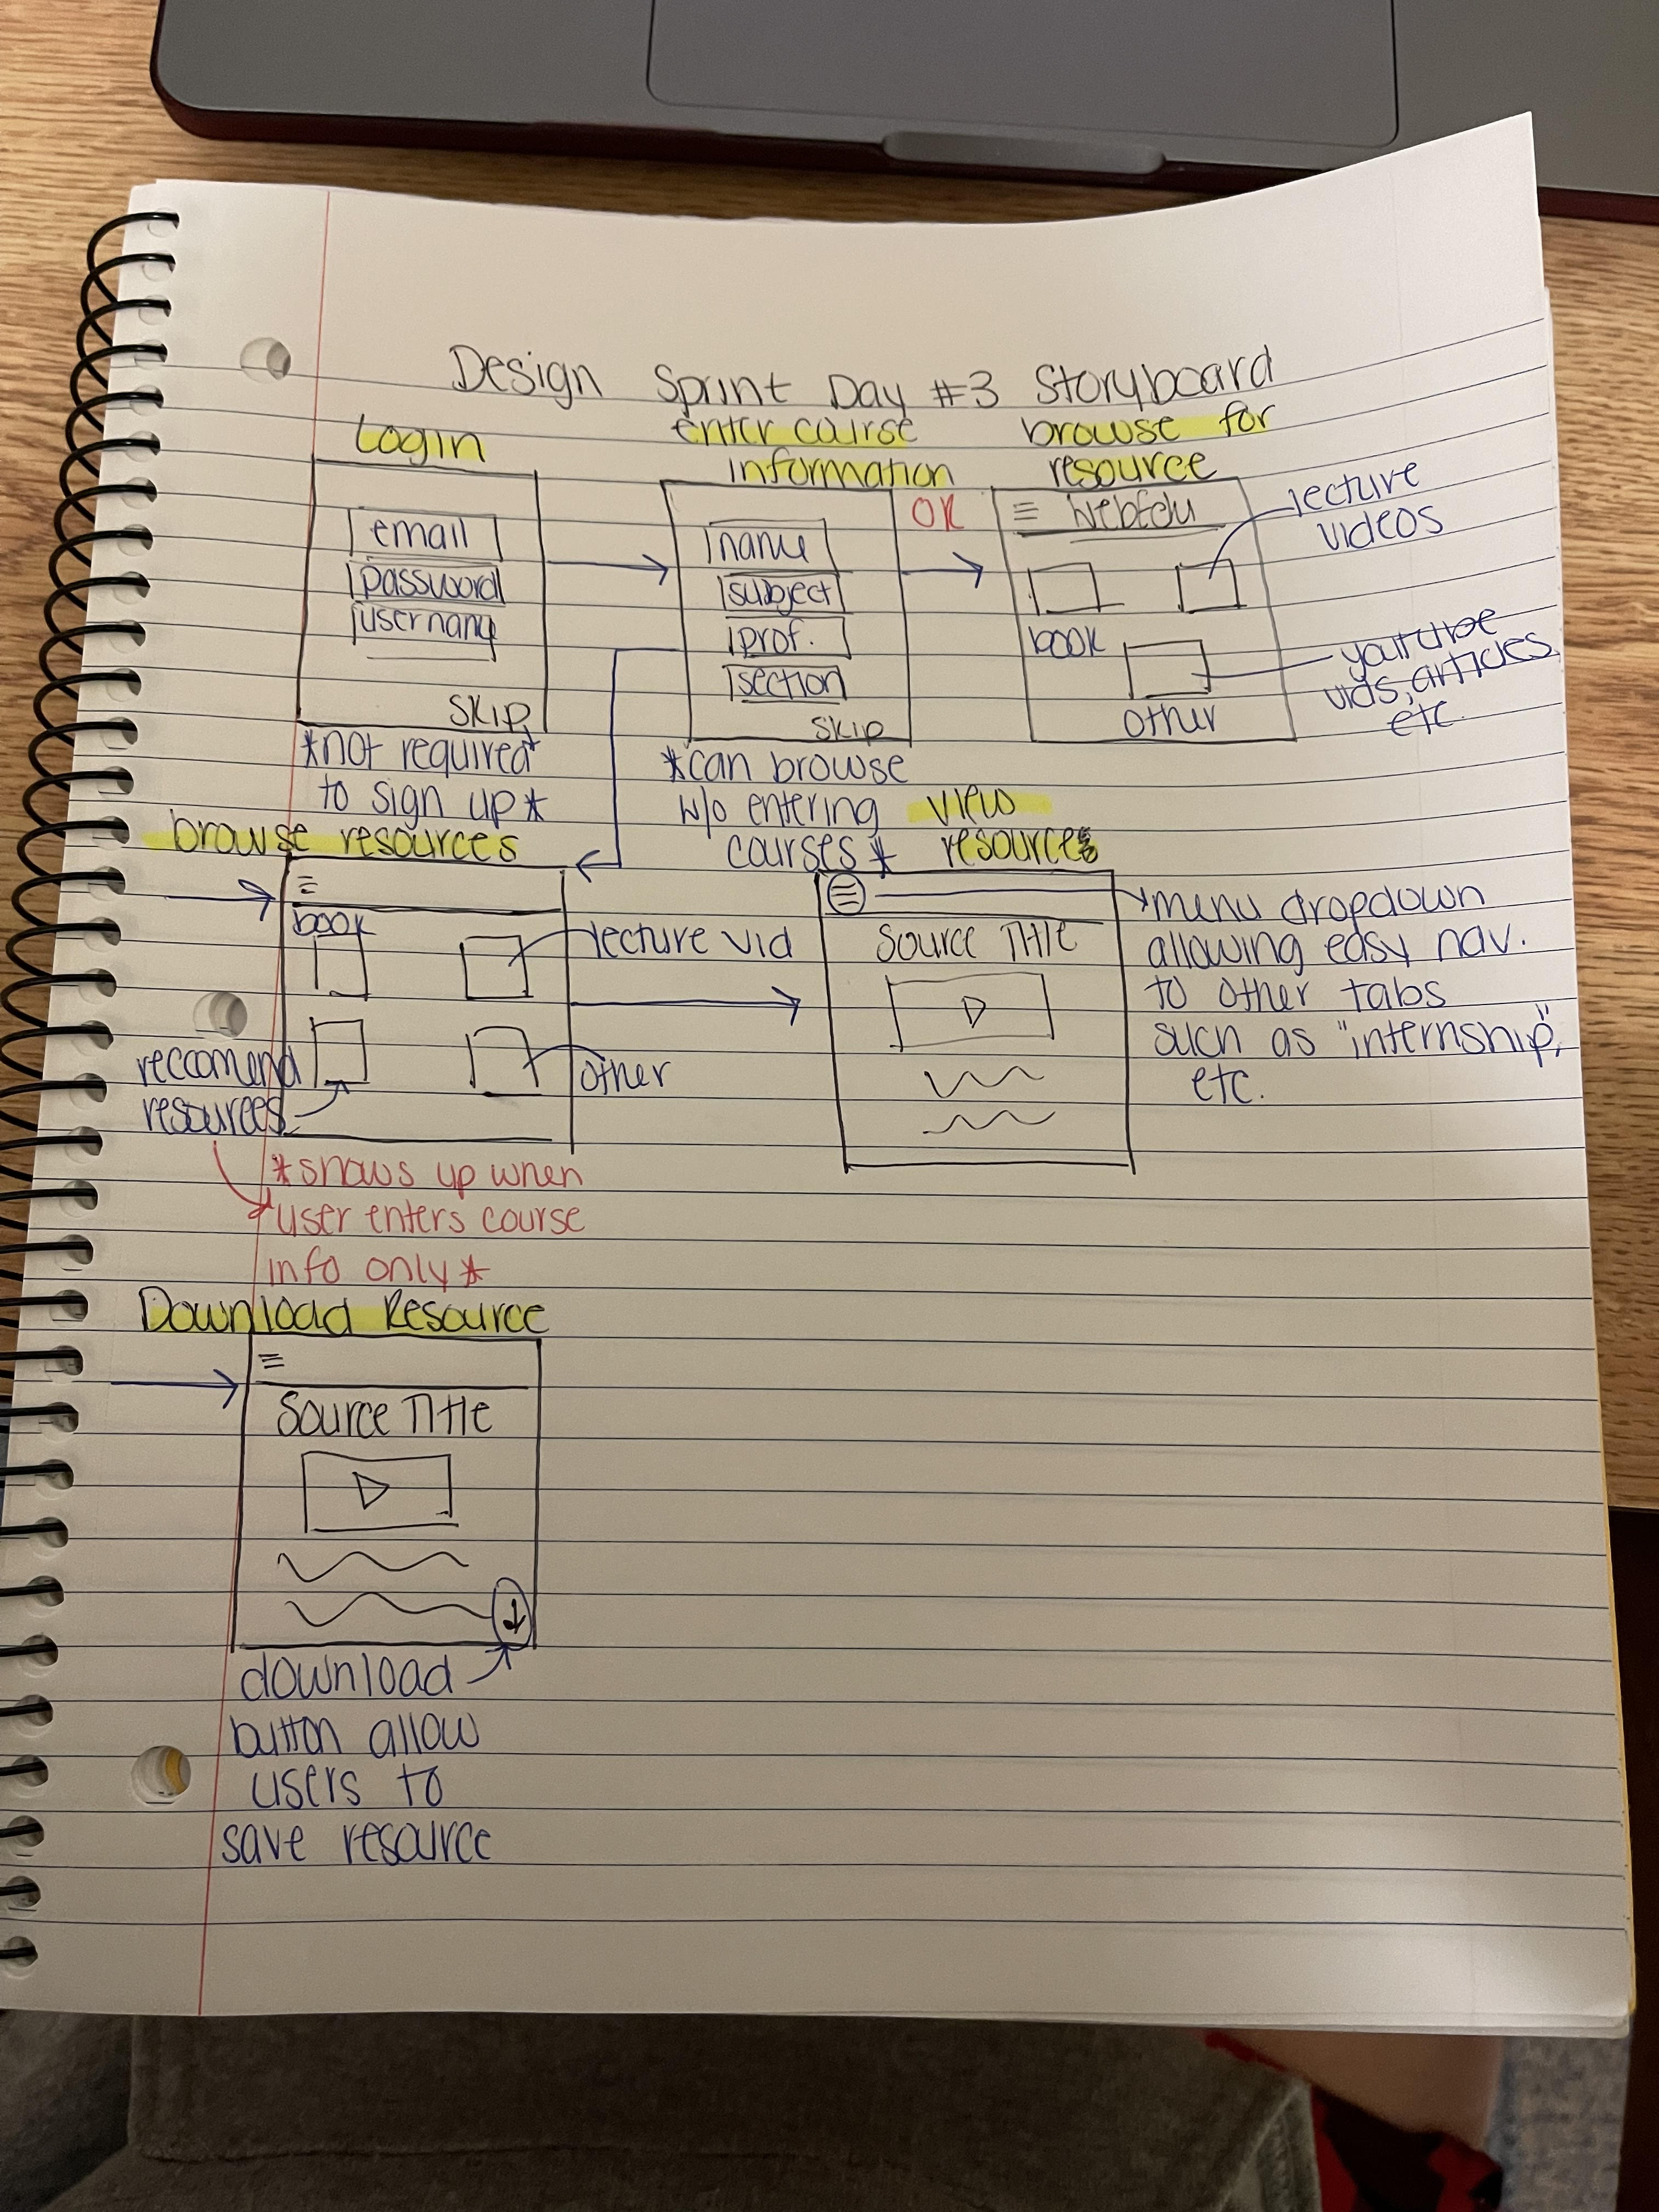 Design Sprint Day #3 Storyboard
Login
email
password
username
SKIP
*not required*
to sign up*
enter course
information
name
subject
prof.
section
SKIP
*can browse
w/o entering
courses*
OR
browse for
resource
WebEdu
book
other
lecture
videos
youtube
vids, articles,
etc.
browse resources
book
lecture vid
other
reccomend
resources
*shows up when
user enters course
info only*
view
resources
Source Title
menu dropdown
allowing easy nav.
to other tabs
such as "internship",
etc.
Download Resource
Source Title
download
button allow
users to
save resource